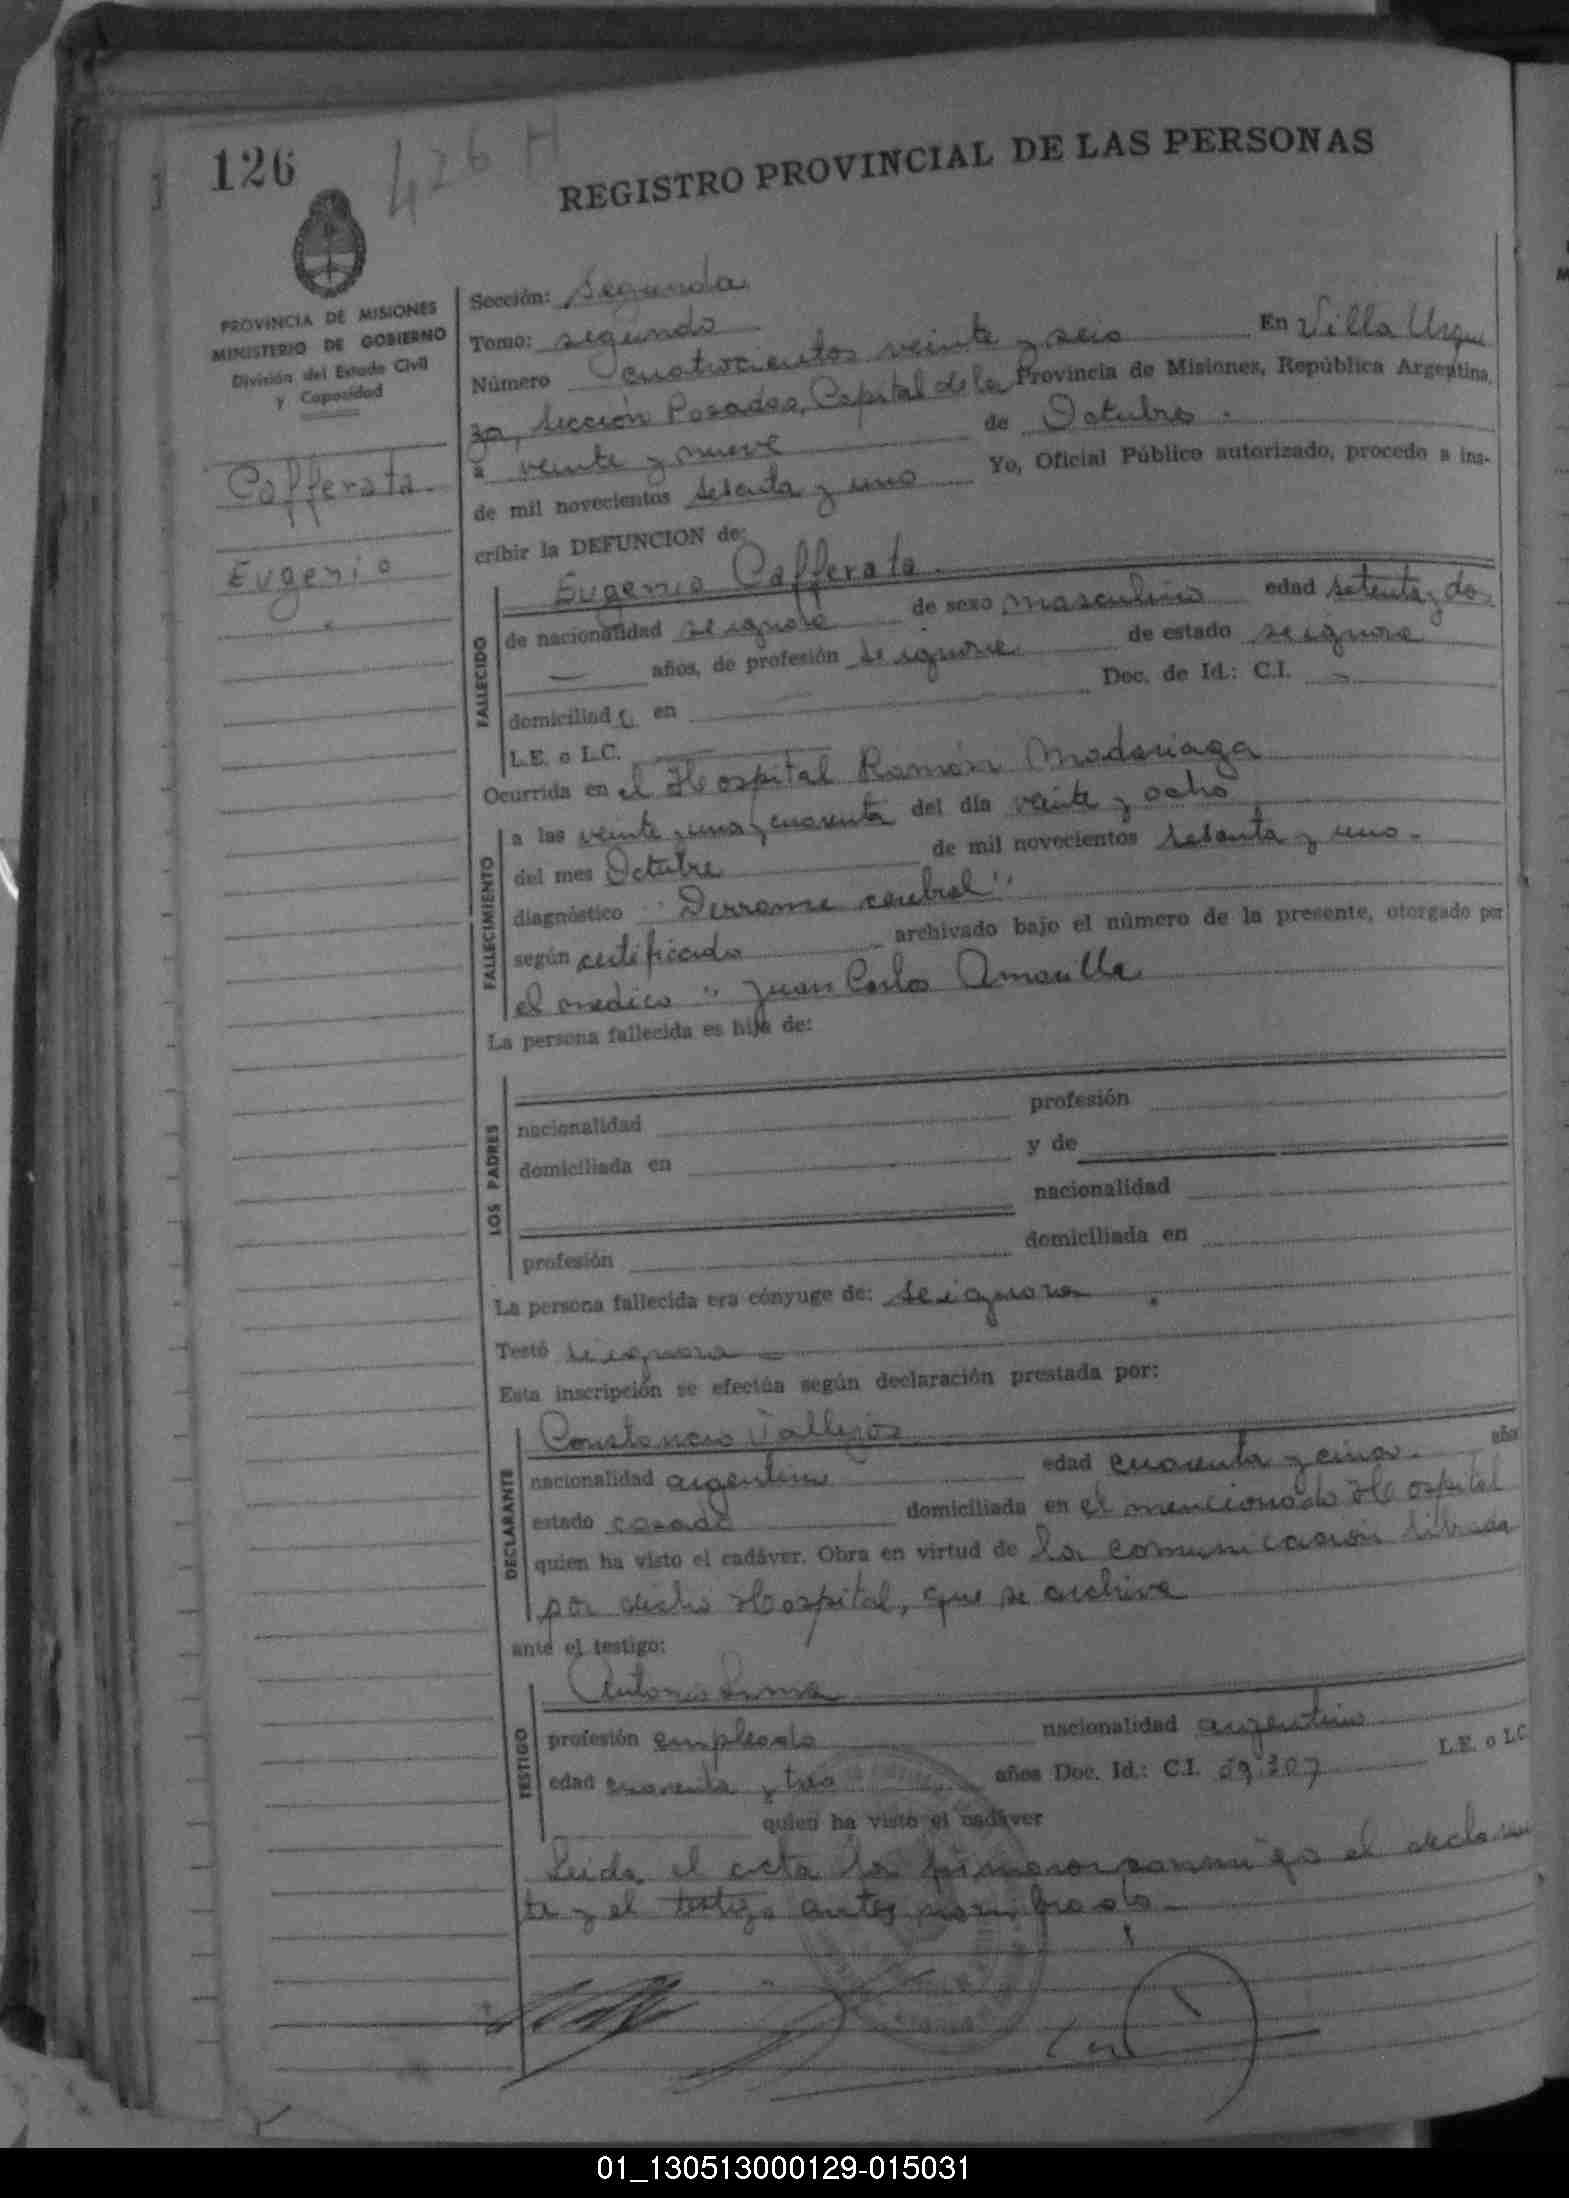 126
426 H
REGISTRO PROVINCIAL DE LAS PERSONAS
PROVINCIA DE MISIONES
MINISTERIO DE GOBIERNO
División del Estado Civil
y Capacidad
Cafferata
Eugenio
Sección: Segunda
Tomo: segundo
Número cuatrocientos veinte y seis En Villa Urqui
za, Sección Posadas, Capital de la Provincia de Misiones, República Argentina,
a veinte y nueve de Octubre
de mil novecientos setenta y uno Yo, Oficial Público autorizado, procedo a ins-
cribir la DEFUNCION de:
FALLECIDO
Eugenio Cafferata
de nacionalidad se ignora de sexo masculino edad setenta y dos
años, de profesión se ignora de estado se ignora
domiciliado en Doc. de Id.: C.I.
L.E. o L.C.
Ocurrida en el Hospital Ramón Madariaga
FALLECIMIENTO
a las veinte y una y cuarenta del día veinte y ocho
del mes Octubre de mil novecientos setenta y uno
diagnóstico "Derrame cerebral"
según certificado archivado bajo el número de la presente, otorgado por
el medico " Juan Carlos Amarilla
La persona fallecida es hijo de:
LOS PADRES
nacionalidad profesión
domiciliada en y de
nacionalidad
profesión domiciliada en
La persona fallecida era cónyuge de: se ignora
Testó se ignora
Esta inscripción se efectúa según declaración prestada por:
DECLARANTE
Constancio Vallejos
nacionalidad argentino edad cuarenta y cinco años
estado casado domiciliada en el mencionado Hospital
quien ha visto el cadáver. Obra en virtud de la comunicación librada
por dicho Hospital, que se archiva
ante el testigo:
TESTIGO
Antonio
profesión empleado nacionalidad argentino
edad cuarenta y tres años Doc. Id.: C.I. 59.307 L.E. o L.C.
quien ha visto el cadáver
Leida el acta la firmaron conmigo el declaran
te y el testigo antes nombrado.
01_130513000129-015031